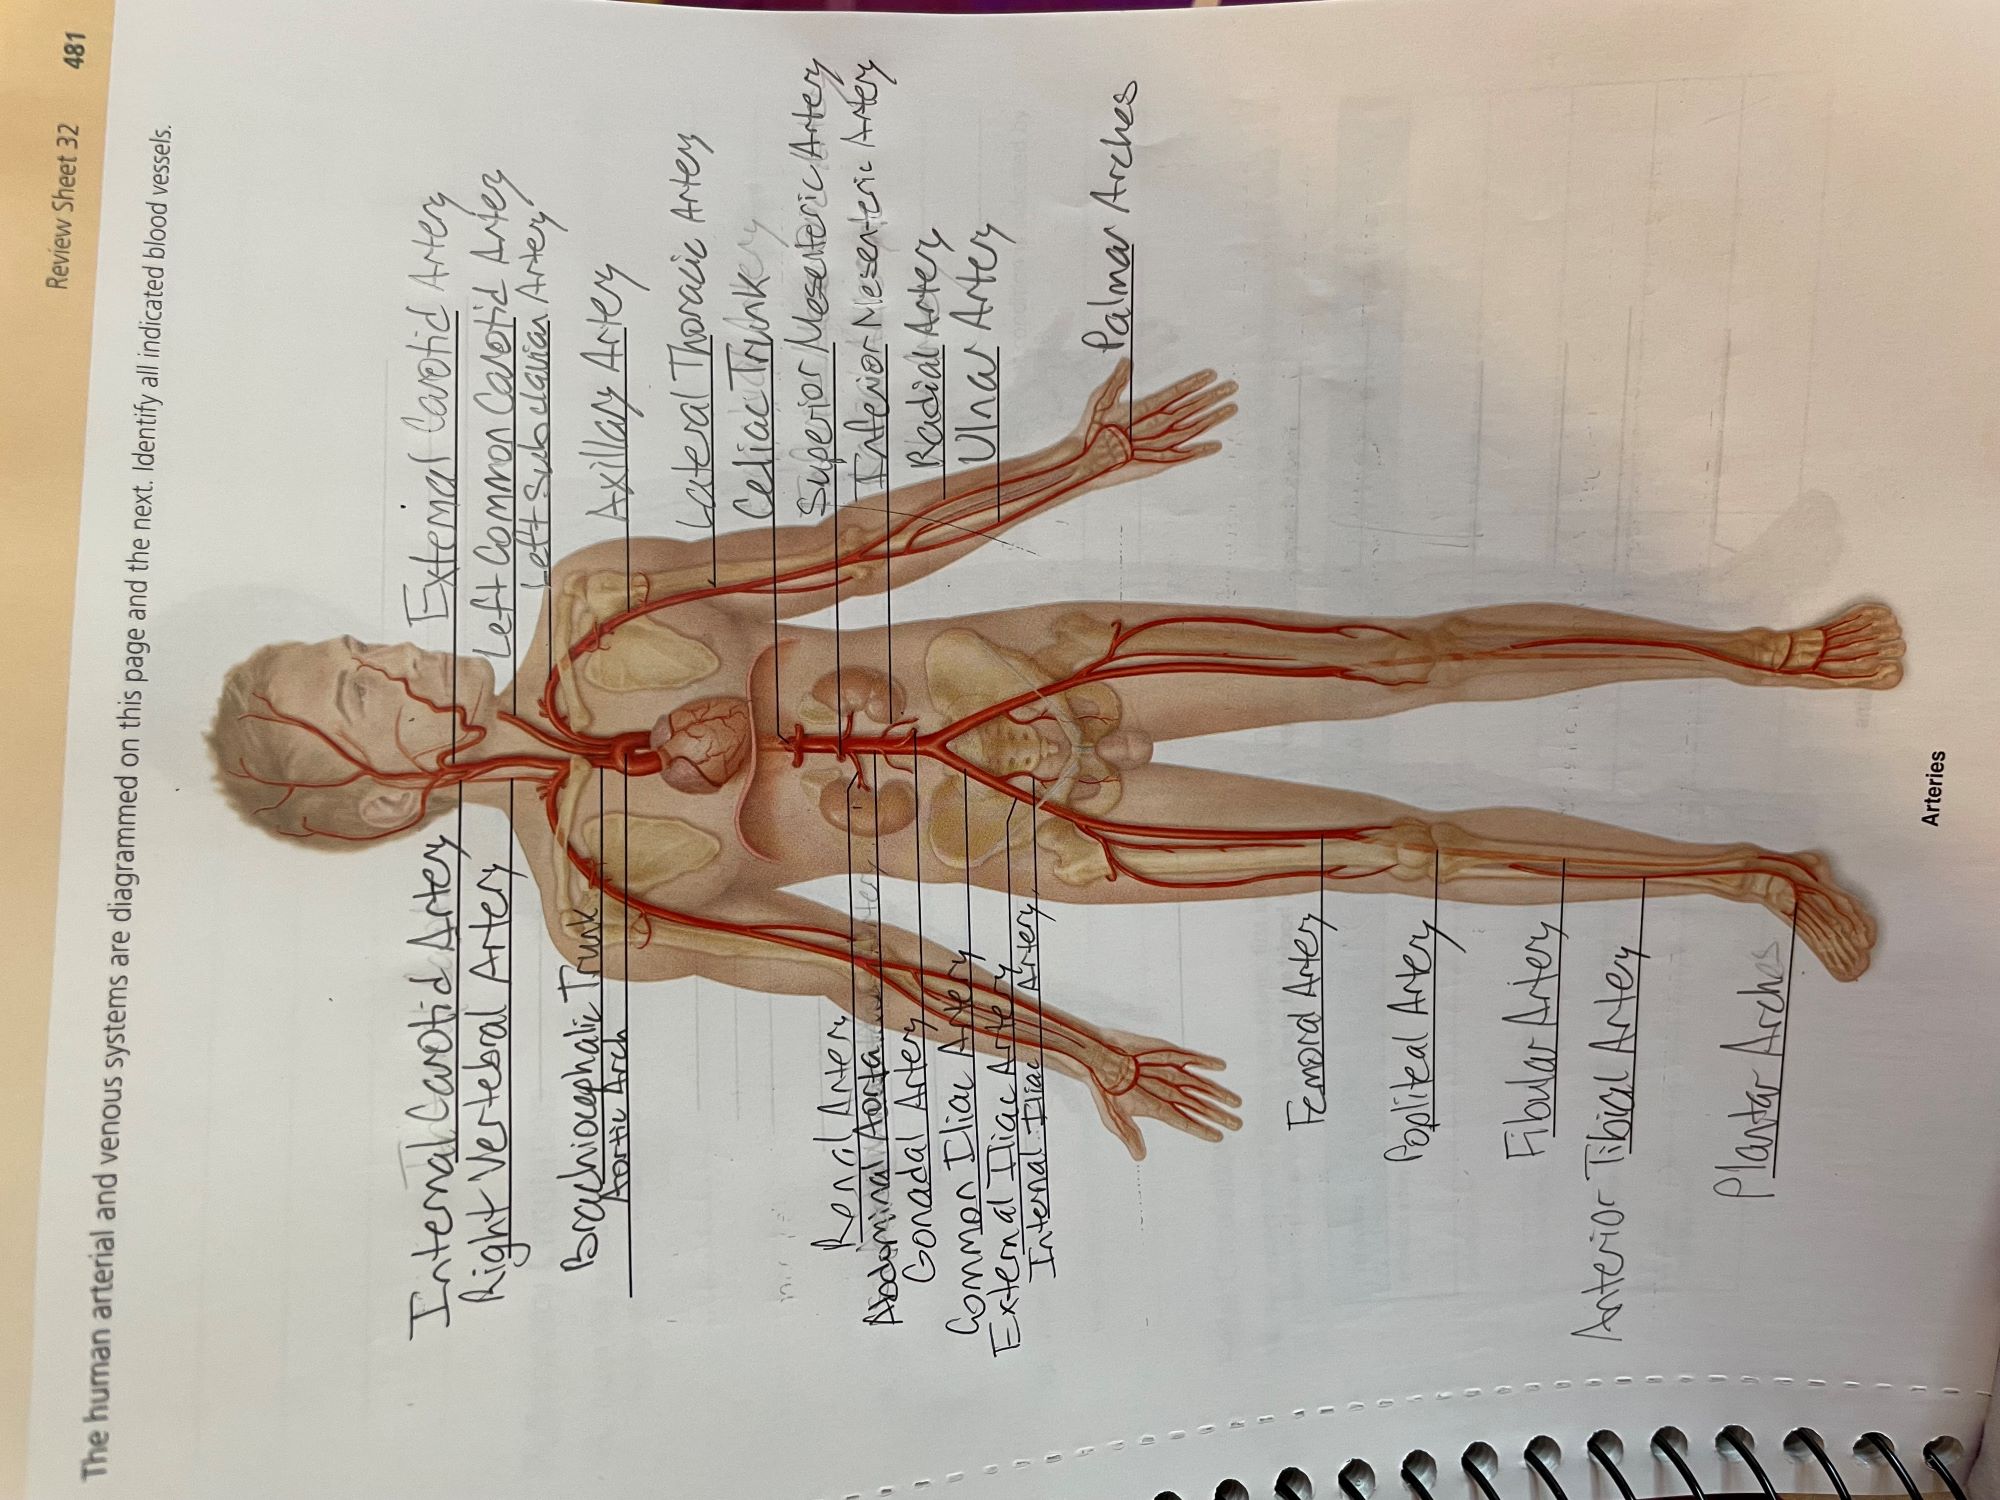 Review Sheet 32 481
The human arterial and venous systems are diagrammed on this page and the next. Identify all indicated blood vessels.
Internal Carotid Artery
External Carotid Artery
Right Vertebral Artery
Left Common Carotid Artery
Left Subclavian Artery
Brachiocephalic Trunk
Aortic Arch
Axillary Artery
Lateral Thoracic Artery
Celiac Trunk
Superior Mesenteric Artery
Renal Artery
Inferior Mesenteric Artery
Abdominal Aorta
Gonadal Artery
Radial Artery
Common Iliac Artery
Ulnar Artery
External Iliac Artery
Internal Iliac Artery
Palmar Arches
Femoral Artery
Popliteal Artery
Fibular Artery
Anterior Tibial Artery
Plantar Arches
Arteries